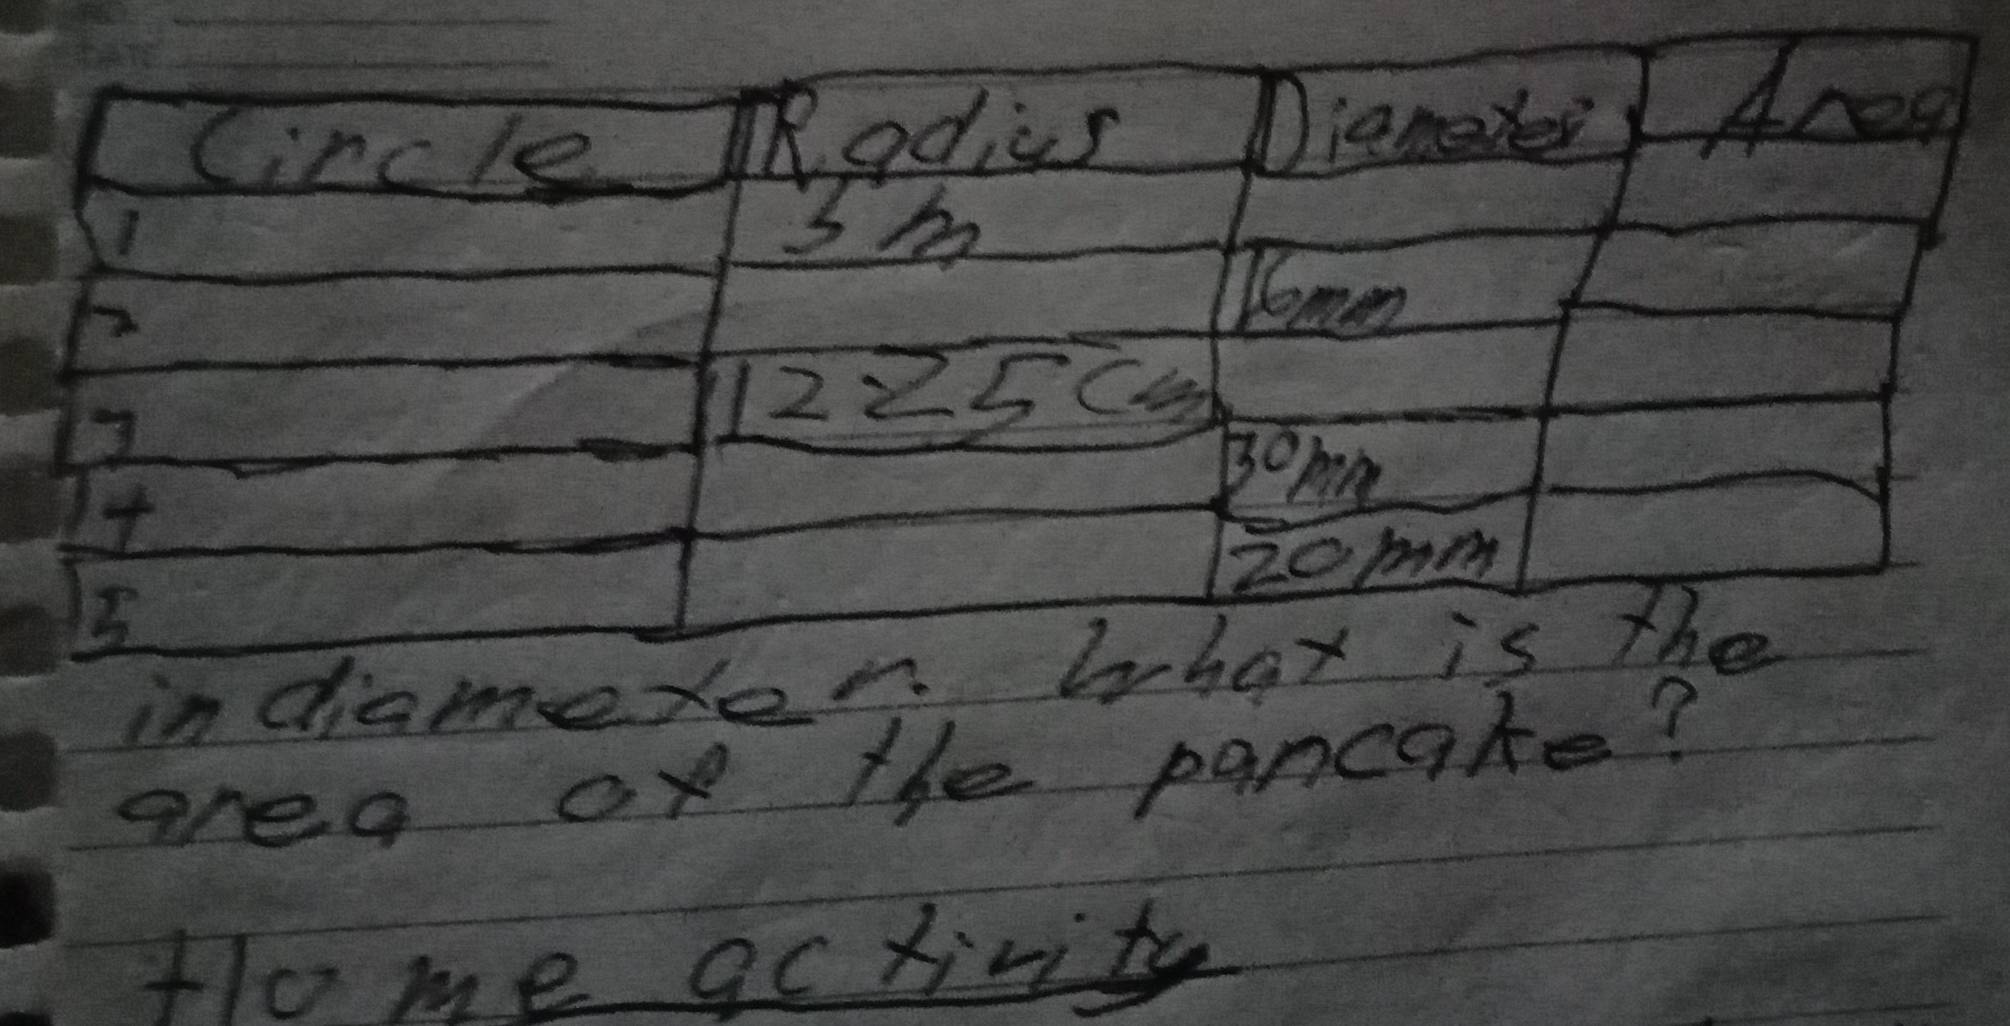 Circle Radius Diameter Area
1 5 m
2 16mm
3 12 25 Cm
4 30mm
5 20mm
in diameter. What is the
area of the pancake?
Home activity